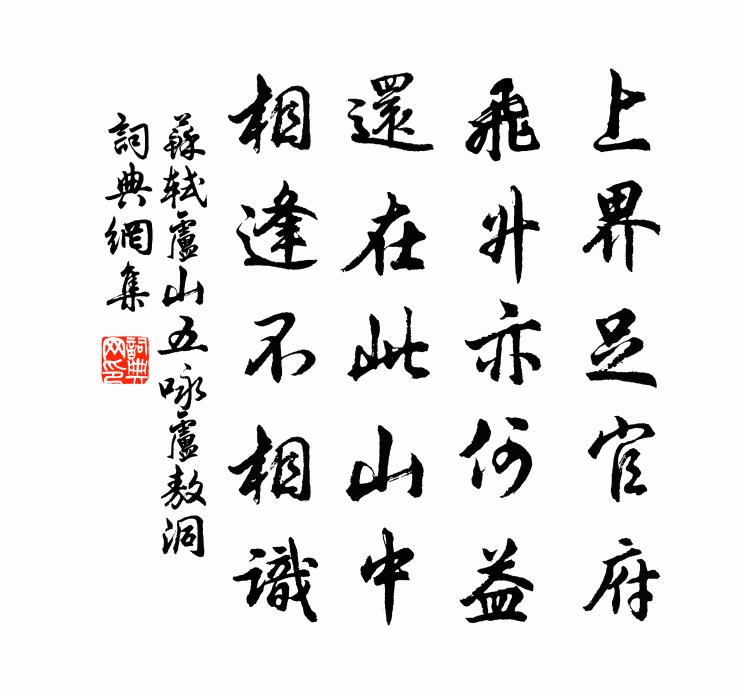 上界足官府
飛升亦何益
還在此山中
相逢不相識
蘇軾盧山五咏盧敖洞
詞典網集
詞典網印